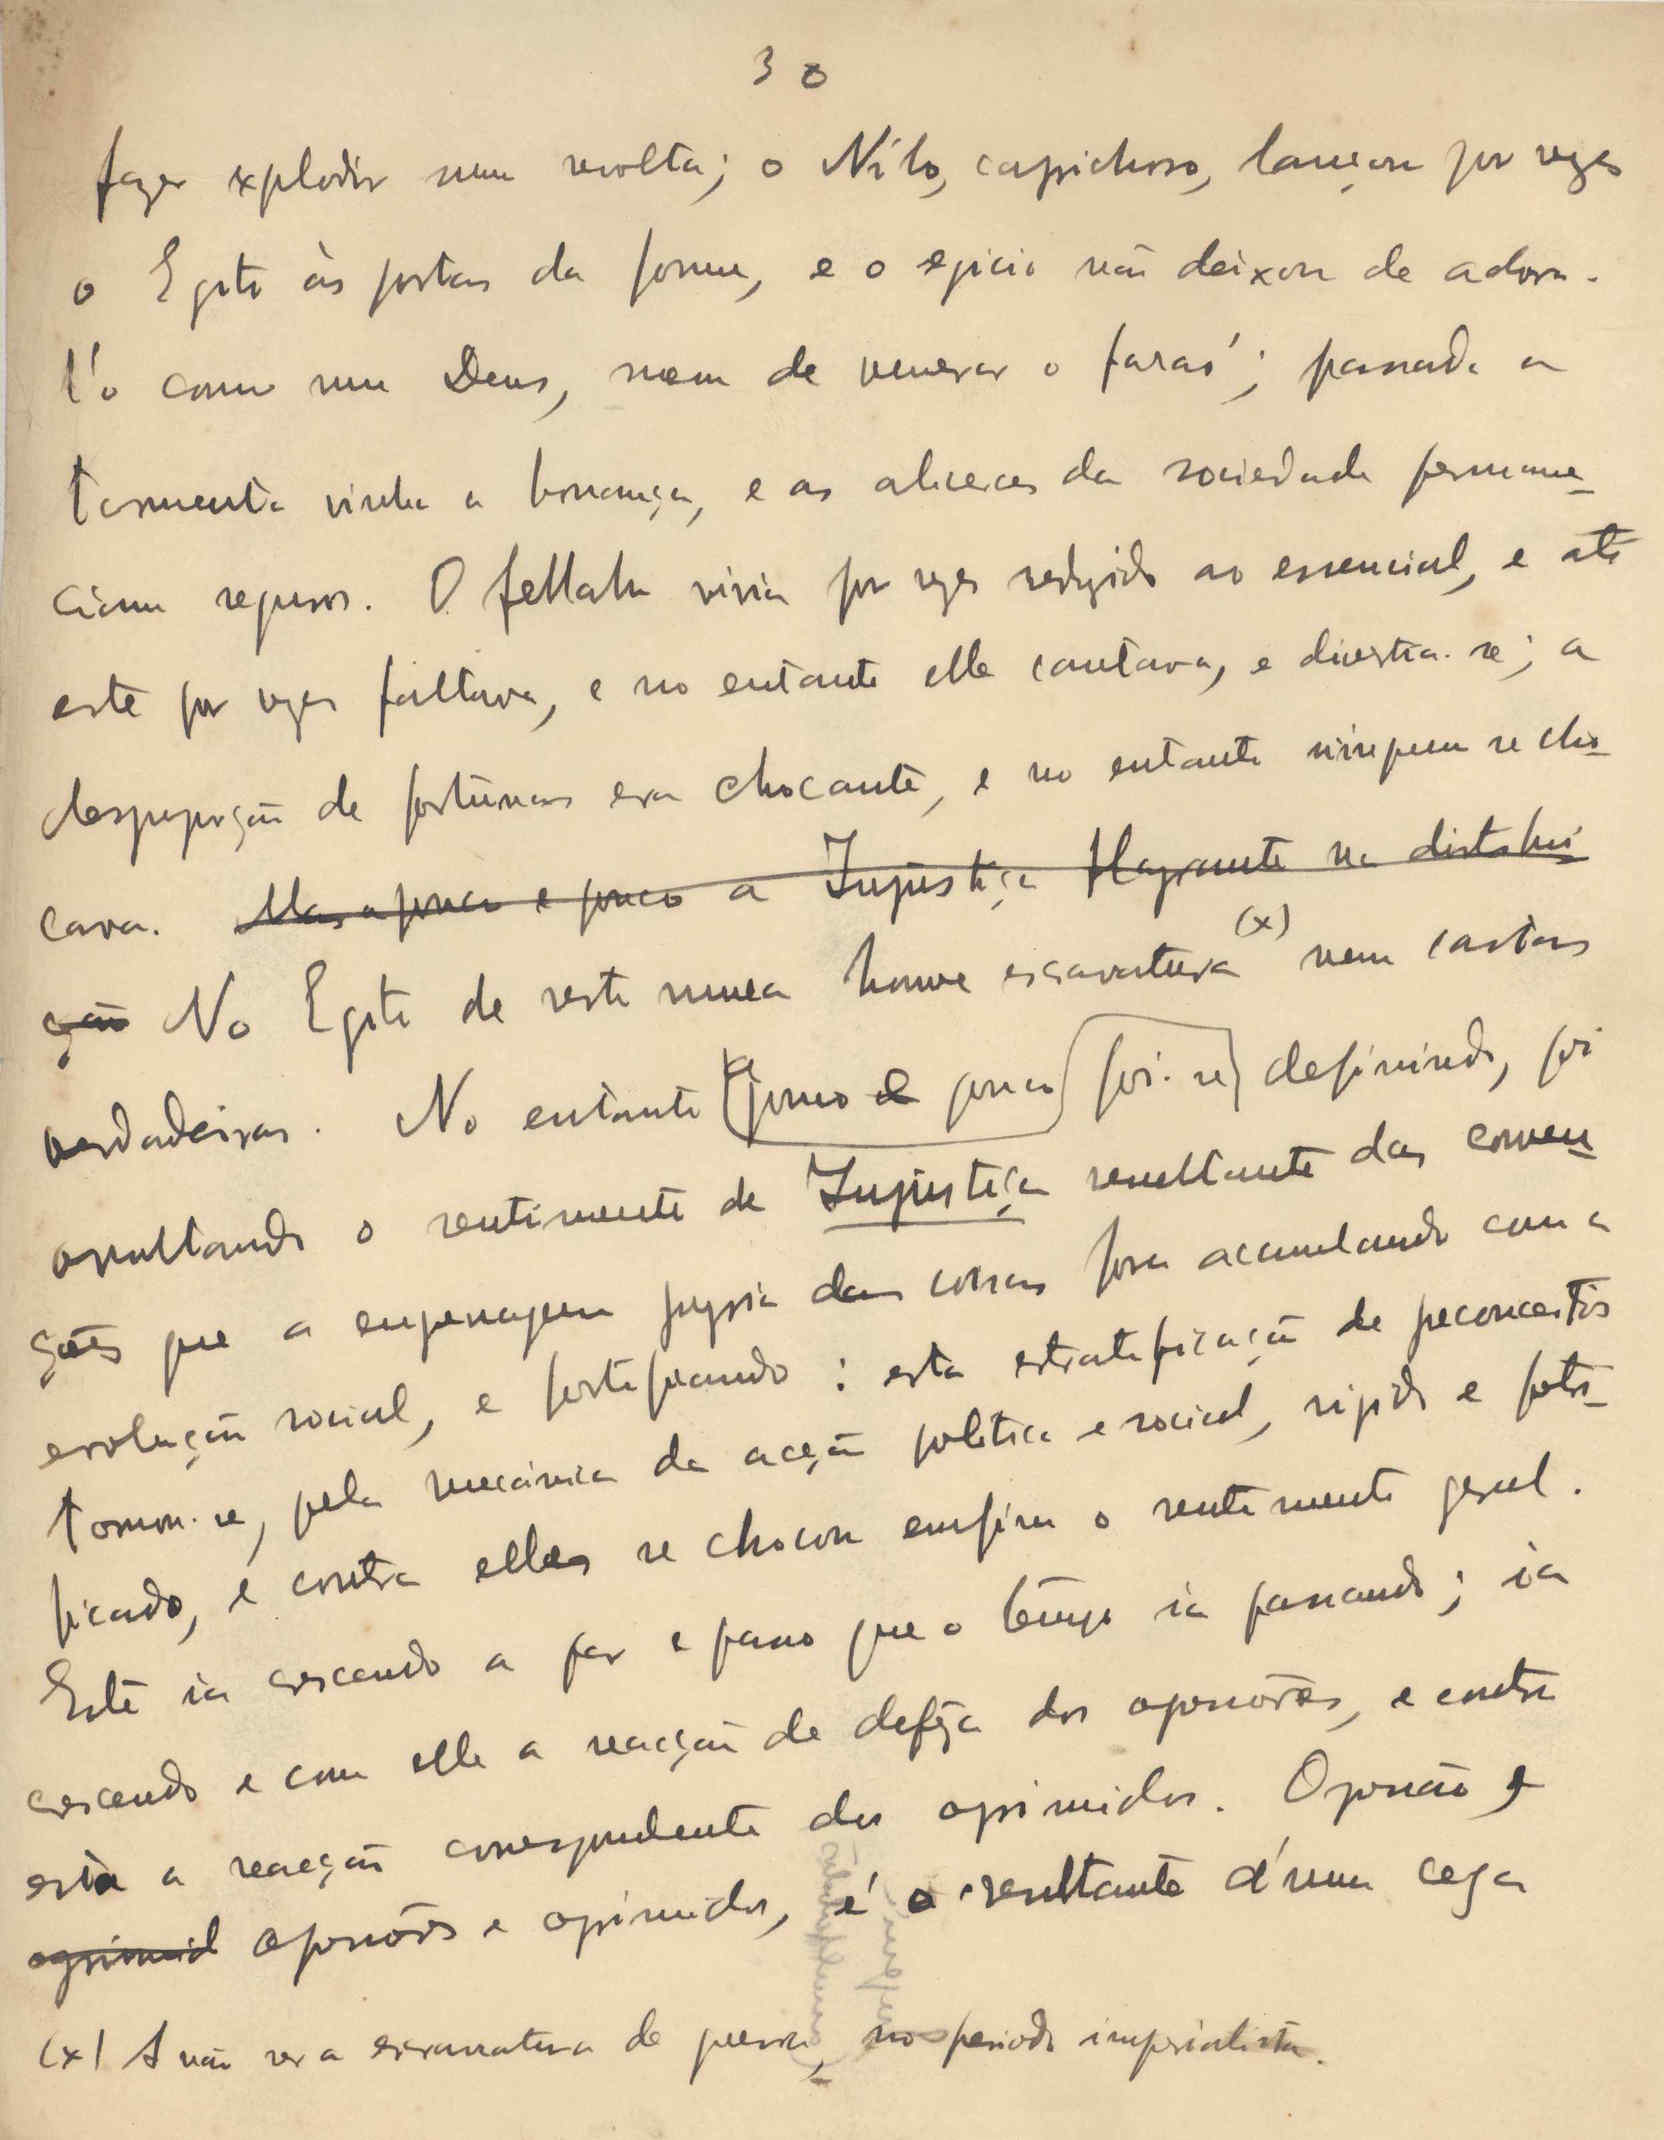 30
fazer explodir numa revolta; o Nilo, caprichoso, lançou por vezes
o Egito às portas da fome, e o egicio não deixou de adora-
l'o como um Deus, nem de venerar o faraó; passada a
tormenta vinha a bonança, e os alicerces da sociedade permane-
ciam seguros. O fellah vivia por vezes reduzido ao essencial, e até
este por vezes faltava, e no entanto elle cantava, e divertia-se; a
desproporção de fortunas era chocante, e no entanto ninguem se cho-
cava. Mas a pouco e pouco a Injustiça flagrante na distribui-
ção No Egito de resto nunca houve escravatura (x) nem castas
verdadeiras. No entanto a pouco e pouco foi-se definindo, foi
avultando o sentimento de Injustiça resultante das conven-
ções que a engrenagem propria das coisas fora acumulando com a
evolução social, e fortificando: esta estratificação de preconceitos
tornou-se, pela mecánica da acção politica e social, rigida e petri-
ficado, e contra elles se chocou emfim o sentimento geral.
Este ia crescendo a par e passo que o tempo ia passando; ia
crescendo e com elle a reacção de defeza dos opressores, e contra
esta a reacção correspondente dos oprimidos. Opressão e
oprimid opressores e oprimidos, é a resultante d'uma cega
(x) A não ser a escravatura de guerra, no periodo imperialista.